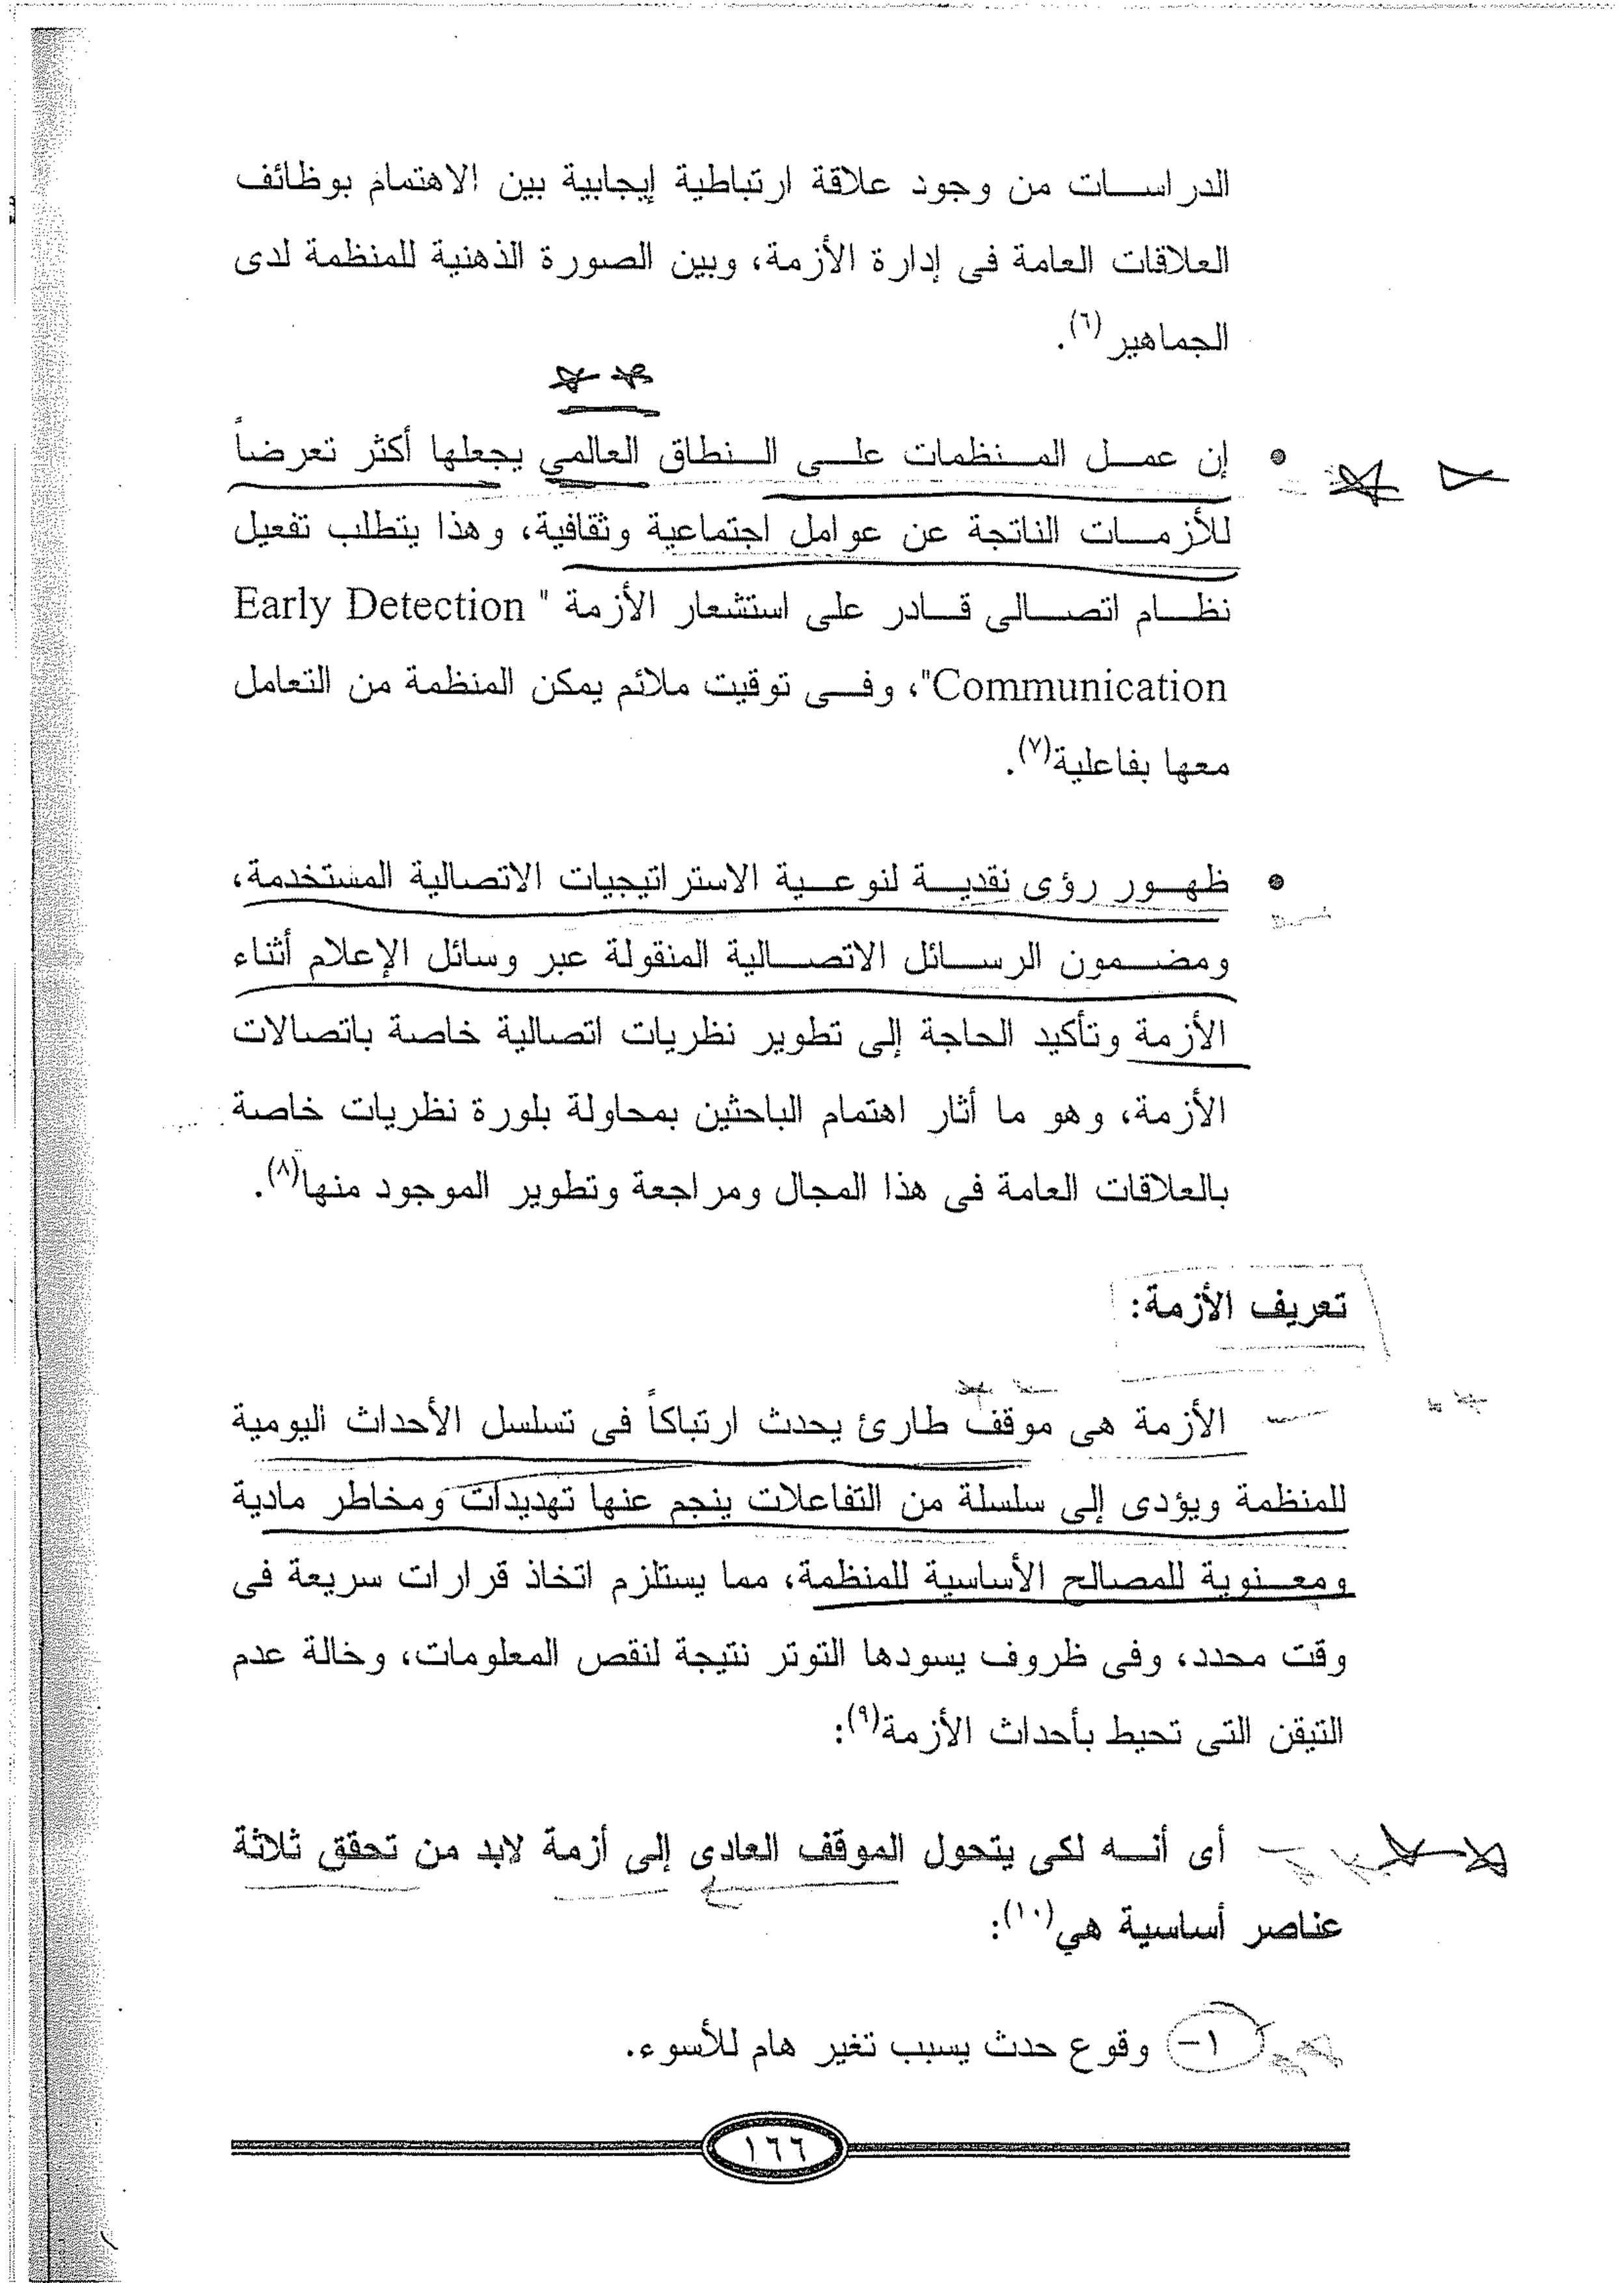 الدراسات من وجود علاقة ارتباطية إيجابية بين الاهتمام بوظائف
العلاقات العامة فى إدارة الأزمة، وبين الصورة الذهنية للمنظمة لدى
الجماهير(٦).
• إن عمل المنظمات على النطاق العالمي يجعلها أكثر تعرضاً
للأزمات الناتجة عن عوامل اجتماعية وثقافية، وهذا يتطلب تفعيل
نظام اتصالى قادر على استشعار الأزمة " Early Detection
Communication"، وفى توقيت ملائم يمكن المنظمة من التعامل
معها بفاعلية(٧).
• ظهور رؤى نقدية لنوعية الاستراتيجيات الاتصالية المستخدمة،
ومضمون الرسائل الاتصالية المنقولة عبر وسائل الإعلام أثناء
الأزمة وتأكيد الحاجة إلى تطوير نظريات اتصالية خاصة باتصالات
الأزمة، وهو ما أثار اهتمام الباحثين بمحاولة بلورة نظريات خاصة
بالعلاقات العامة فى هذا المجال ومراجعة وتطوير الموجود منها(٨).
تعريف الأزمة:
الأزمة هى موقف طارئ يحدث ارتباكاً فى تسلسل الأحداث اليومية
للمنظمة ويؤدى إلى سلسلة من التفاعلات ينجم عنها تهديدات ومخاطر مادية
ومعنوية للمصالح الأساسية للمنظمة، مما يستلزم اتخاذ قرارات سريعة فى
وقت محدد، وفى ظروف يسودها التوتر نتيجة لنقص المعلومات، وحالة عدم
التيقن التى تحيط بأحداث الأزمة(٩):
أى أنه لكى يتحول الموقف العادى إلى أزمة لابد من تحقق ثلاثة
عناصر أساسية هي(١٠):
١- وقوع حدث يسبب تغير هام للأسوء.
١٦٦